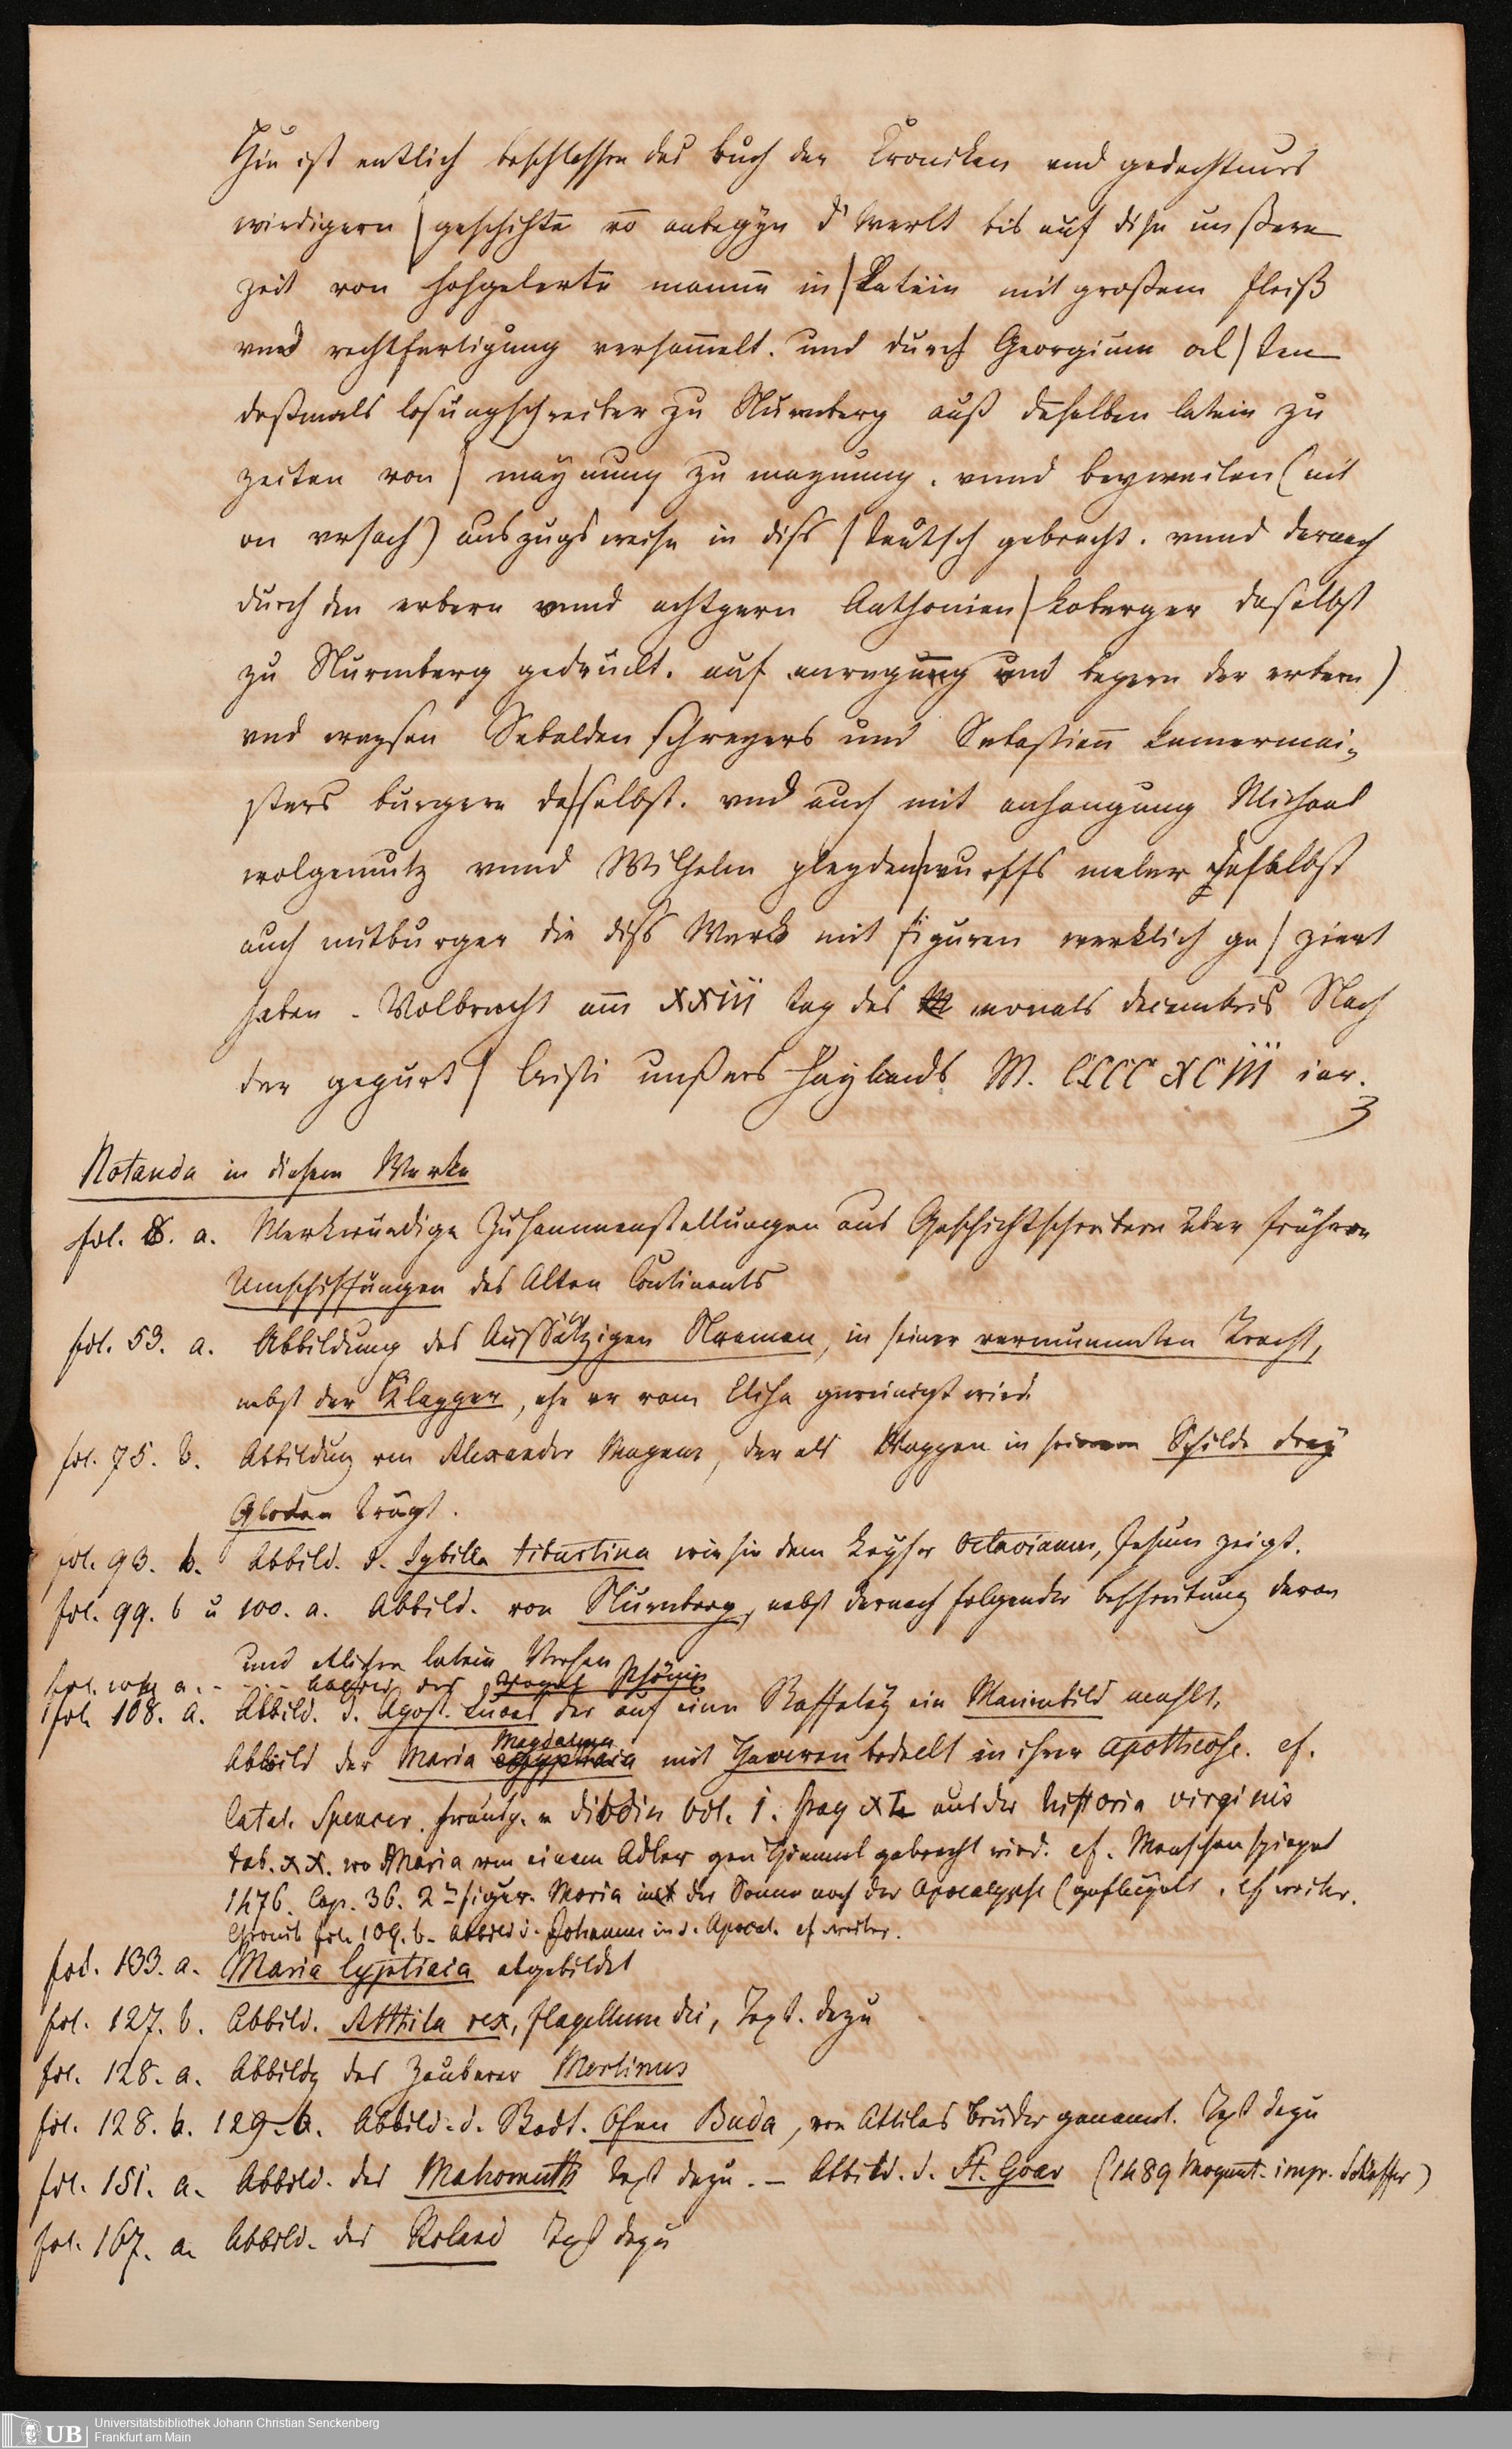 Hie ist entlich beschlossen das buch der Cronicken und gedechtnus
wirdigern | geschihtē vō anbegyn d' werlt bis auf dise unßere
zeit von hohgelertē mannē in | Latein mit großem fleiß
vnd rechtfertigung versam̄elt. und durch Georgium al | ten
deßmals losungschreiber zu Nurmberg auß deselben latein zu
zeiten von | maynung zu maynung. vnnd beyweilen (nit
on vrsach) auszugs weise in diss | teutsch gebracht. vnnd darnach
durch den erbern vnnd achtpern Anthonien | koberger daselbst
zu Nurmberg gedruckt. auf anregung und begern der erbern |
vnd weysen Sebalden schreyers und Sebastian kamermai-
sters burgere da|selbst. vnd auch mit anhangung Michael
wolgemutz vnnd Wilhelm pleyden|wurffs maler daselbst
auch mitburger die diss Werck mit figuren werklich ge | ziert
haben. Volbracht am XXiii tag des monats decembris Nach
der gepurt | Cristi unßers haylands M. CCCC XCiii iar.
Notanda in diesem Werke
fol. 8. a. Merkwürdige Zusammenstellungen aus Geschichtschreibern über frühere
Umschiffungen des Alten Continents
fol. 53. a. Abbildung des Aussätzigen Naeman, in seiner vermummten Tracht,
nebst der Klapper, ehe er vom Elisa gereinigt wird.
fol. 75. b. Abbildung von Alexander Magnus, der als Wappen in seinem Schilde drey
Glocken trägt.
fol. 93. b. Abbild. d. Sybilla tiburtina wie sie dem Kayser Octavianus, Jesum zeigt.
fol. 99. b u 100. a. Abbild. von Nürnberg, nebst darnach folgender beschreibung davon
und etlichen latein Versen
fol. 104 a. - - - Abbild des Vogel Phönix
fol. 108. a. Abbild. d. Apost. Lucas der auf einer Staffeley ein Marienbild mahlt.
Abbild der Maria Magdalena mit Haaren bedeckt in ihrer Apotheose. cf.
Catal. Spencer. v Dibdin Vol. 1. pag aus der historia virginis
tab. XX. wo Maria von einem Adler gen Himmel gebracht wird. cf. Menschenspiegel
1476. Cap. 36. 2te figur. Maria mit der Sonne nach der Apocalypse (geflügelt. cf weiter.
Chronik fol. 109. b. Abbild d. Johannes in d. Apocal. cf weiter.
fol. 133. a. Maria Egyptiaca abgebildet
fol. 127. b. Abbild. Atthila rex, flagellum dei, Text dazu
fol. 128. a. Abbildg des Zauberer Merlinus
fol. 128. b. 129. a. Abbild. d. Stadt. Ofen Buda, von Attilas bruder genannt. Text dazu
fol. 151. a. Abbild. des Mahomeths Text dazu. – Abbild. d. St. Goar (1489 Mogunt. impr. Schöffer)
fol. 167. a. Abbild. des Roland Text dazu
UB
Universitätsbibliothek Johann Christian Senckenberg
Frankfurt am Main